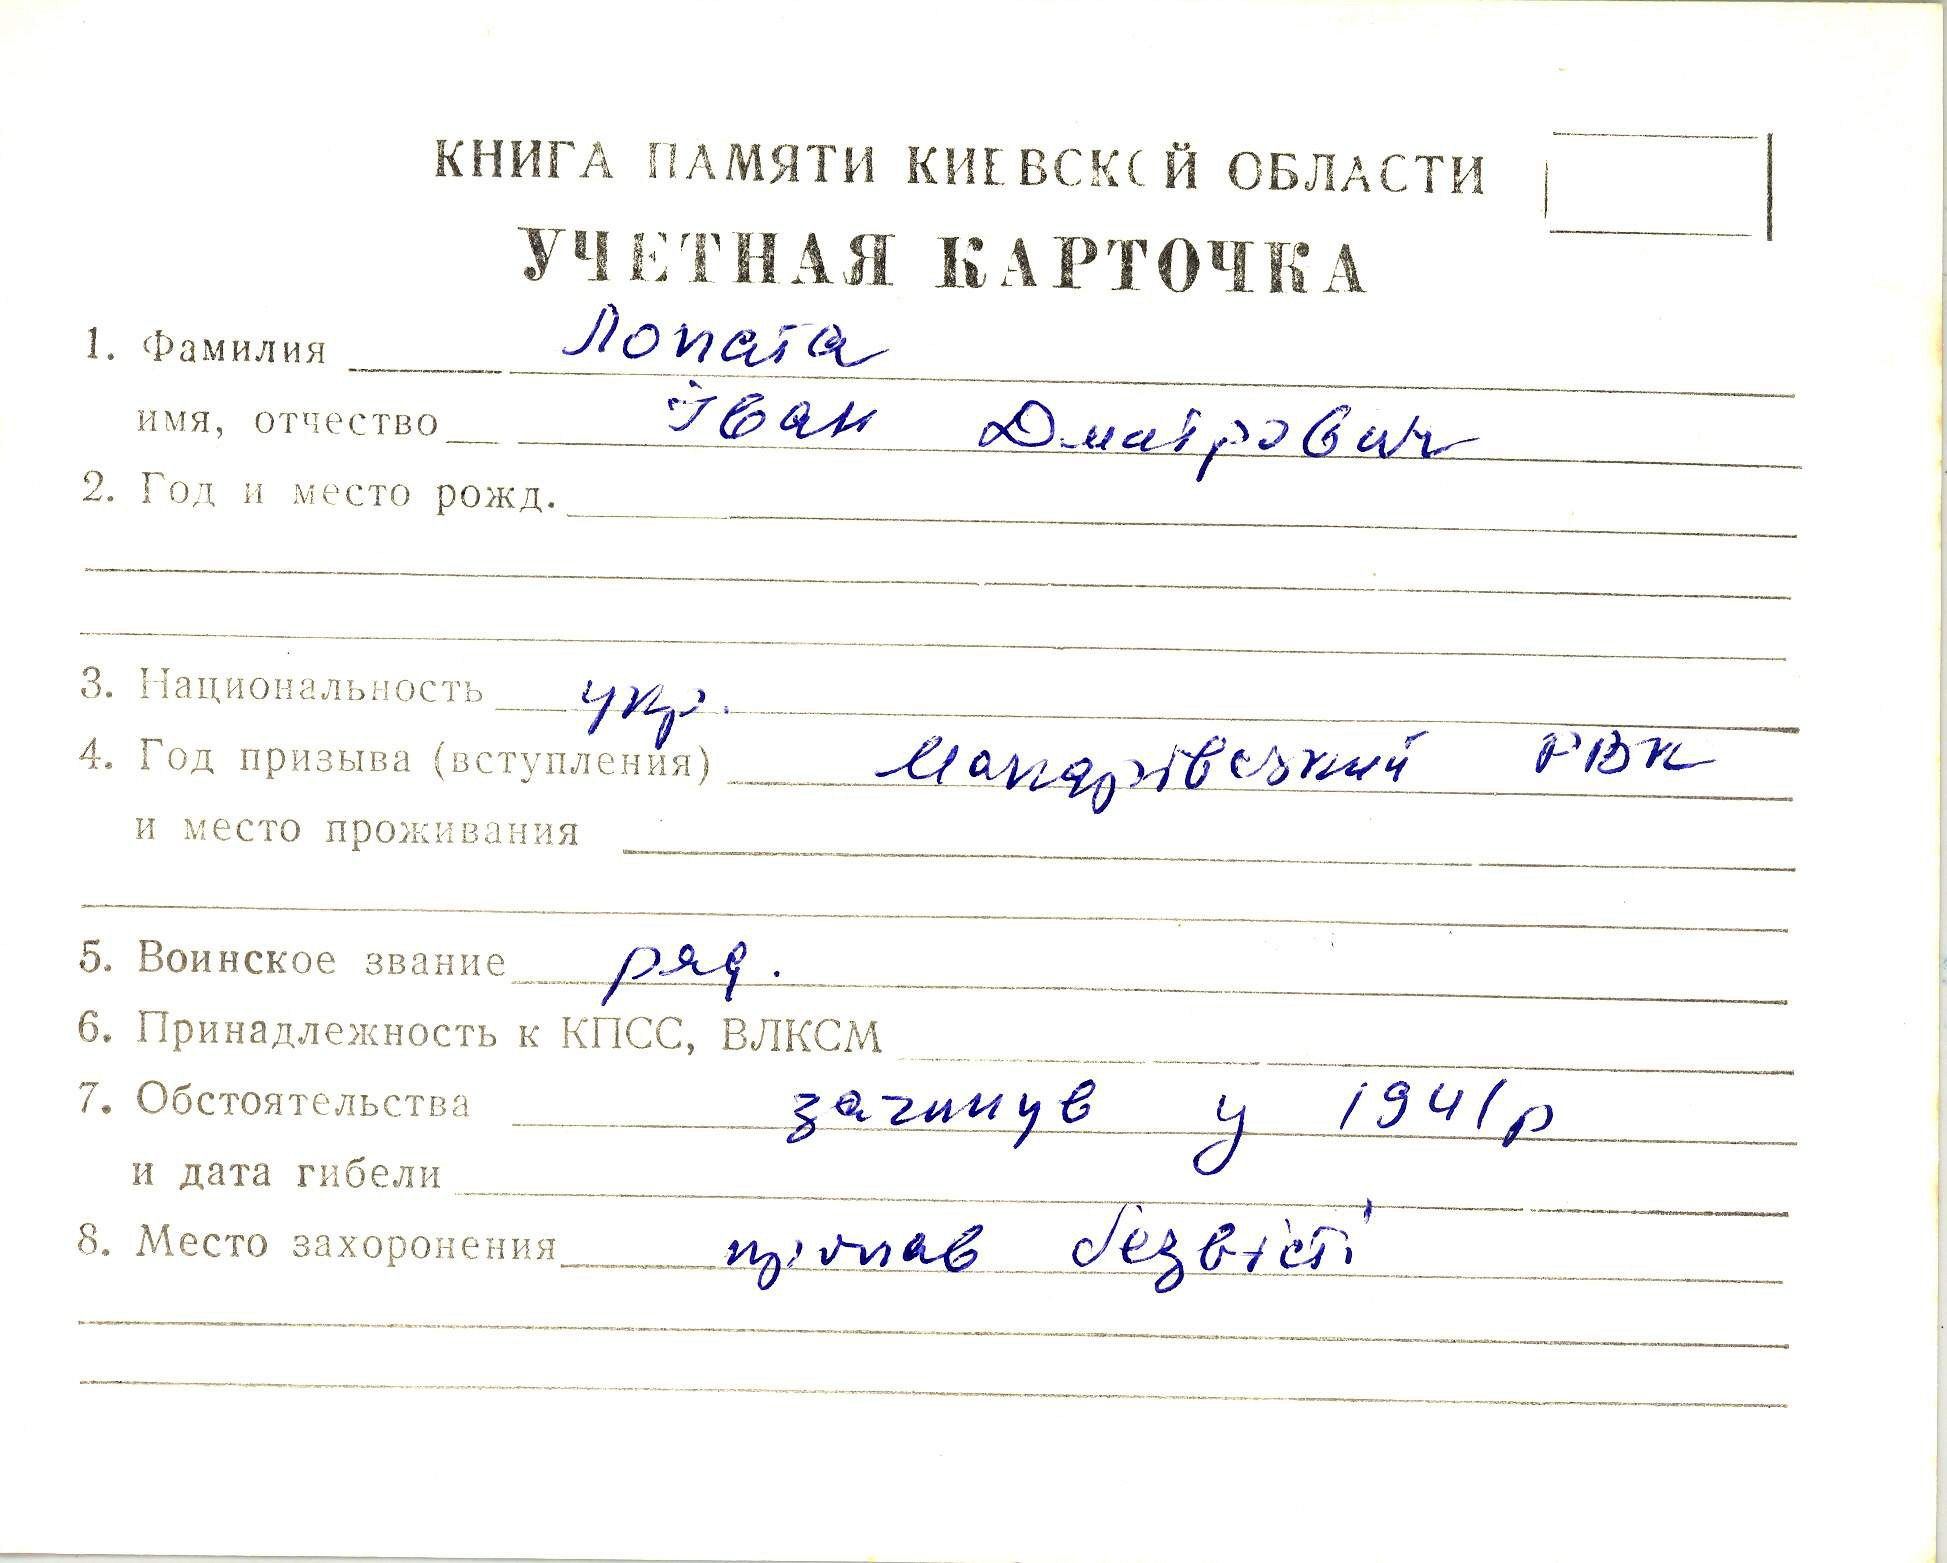 КНИГА ПАМЯТИ КИЕВСКОЙ ОБЛАСТИ
УЧЕТНАЯ КАРТОЧКА
1. Фамилия Лопата
имя, отчество Іван Дмитрович
2. Год и место рожд.
3. Национальность укр.
4. Год призыва (вступления) Макарівський РВК
и место проживания
5. Воинское звание ряд.
6. Принадлежность к КПСС, ВЛКСМ
7. Обстоятельства загинув у 1941р
и дата гибели
8. Место захоронения пропав безвісті